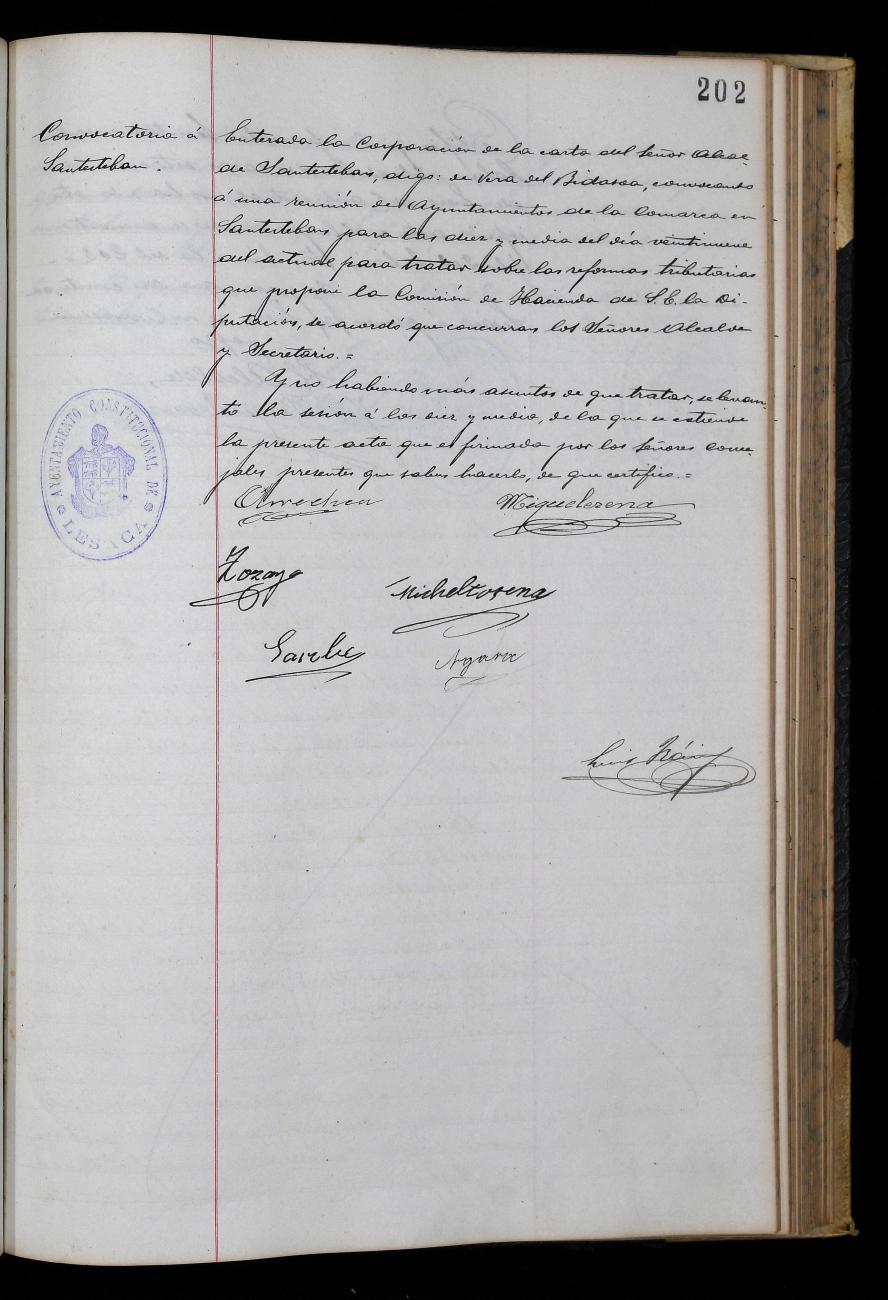 202
Convocatoria á
Santesteban.
Enterada la Corporación de la carta del Señor Alcal-
de Santesteban, digo: de Vera del Bidasoa, convocando
á una reunión de Ayuntamientos de la Comarca en
Santesteban para las diez y media del día veintinueve
del actual para tratar sobre las reformas tributarias
que propone la Comisión de Hacienda de S.E. la Di-
putación, se acordó que concurran los Señores Alcalde
y Secretario.=
Y no habiendo más asuntos de que tratar, se levan-
tó la sesión á las diez y media, de la que se estiende
la presente acta que es firmada por los señores conce-
jales presentes que saben hacerlo, de que certifico.=
AYUNTAMIENTO CONSTITUCIONAL DE
LESACA
Miguelerena
Zozaya
Micheltorena
Luis